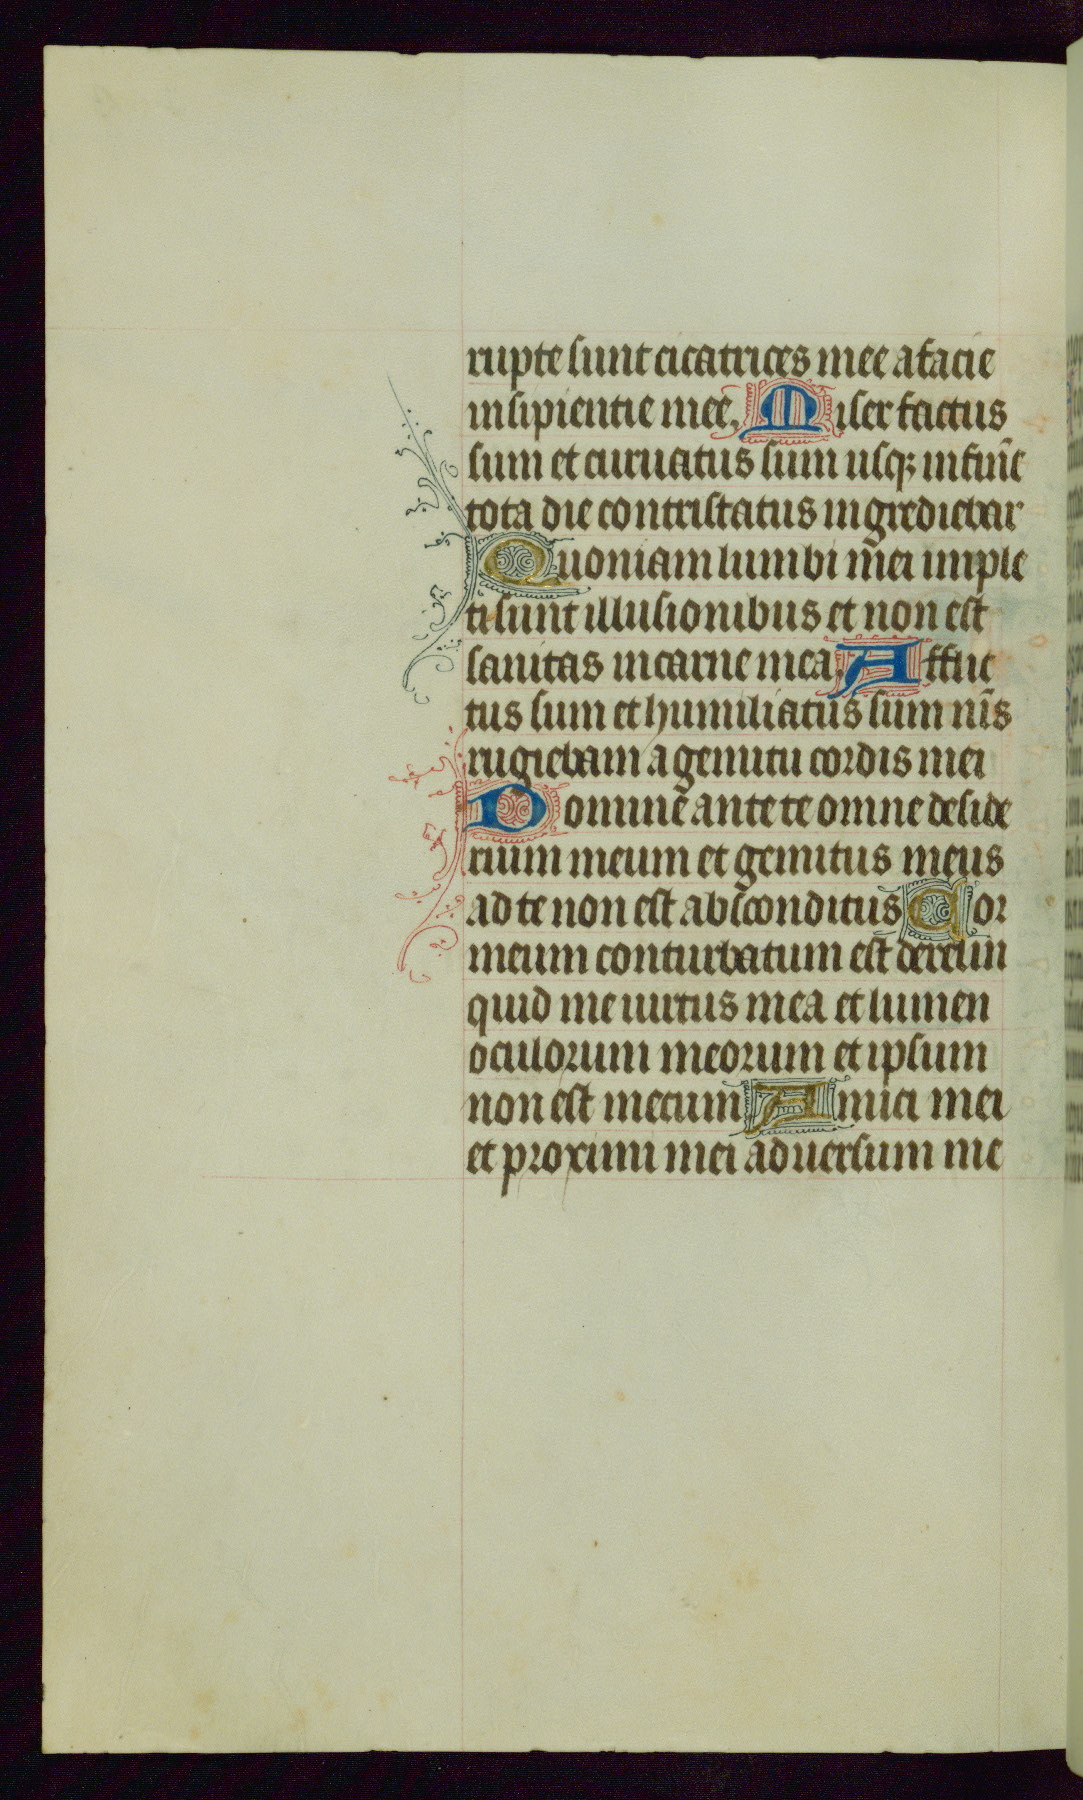 rupte sunt cicatrices mee a facie
insipientie mee. Miser factus
sum et curuatus sum usq; in finē
tota die contristatus ingrediebar
Quoniam lumbi mei imple
ti sunt illusionibus et non est
sanitas in carne mea. Afflic
tus sum et humiliatus sum nīs
rugiebam a gemitu cordis mei
Domine ante te omne deside
rium meum et gemitus meus
ad te non est absconditus Cor
meum conturbatum est derelin
quid me uirtus mea et lumen
oculorum meorum et ipsum
non est mecum Amici mei
et proximi mei aduersum me